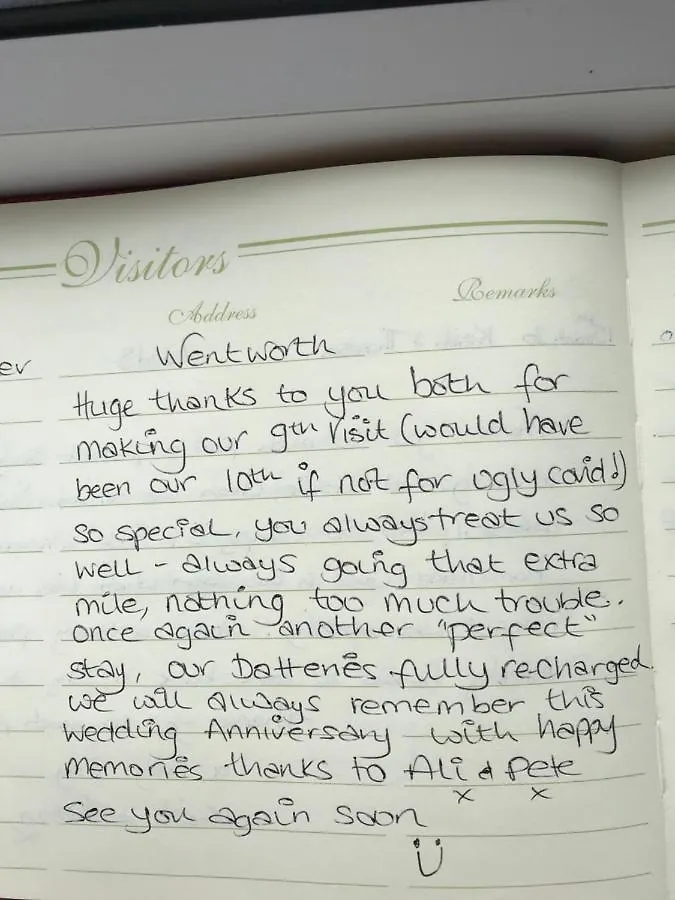 Visitors
Address
Remarks
er
Wentworth
Huge thanks to you both for
making our 9th visit (would have
been our 10th if not for ugly covid!)
so special, you always treat us so
well - always going that extra
mile, nothing too much trouble.
once again another "perfect"
stay, our batteries fully recharged.
we will always remember this
wedding Anniversary with happy
memories thanks to Ali & Pete
x x
See you again soon